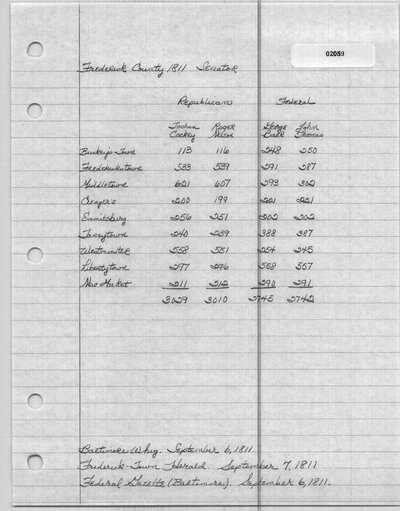 02059
Frederick County 1811 Senator
Republican Federal
Joshua Roger George John
Cockey Nelson Baer Thomas
Buckey's-Town 113 116 248 250
Fredericktown 533 539 291 287
Middletown 621 607 293 302
Creager's 200 199 221 221
Emmitsburg 256 251 202 202
Taneytown 240 239 388 387
Westminster 558 551 254 245
Libertytown 297 296 558 557
New Market 211 212 290 291
3029 3010 2745 2742
Baltimore Whig. September 6, 1811.
Frederick-Town Herald. September 7, 1811
Federal Gazette (Baltimore). September 6, 1811.